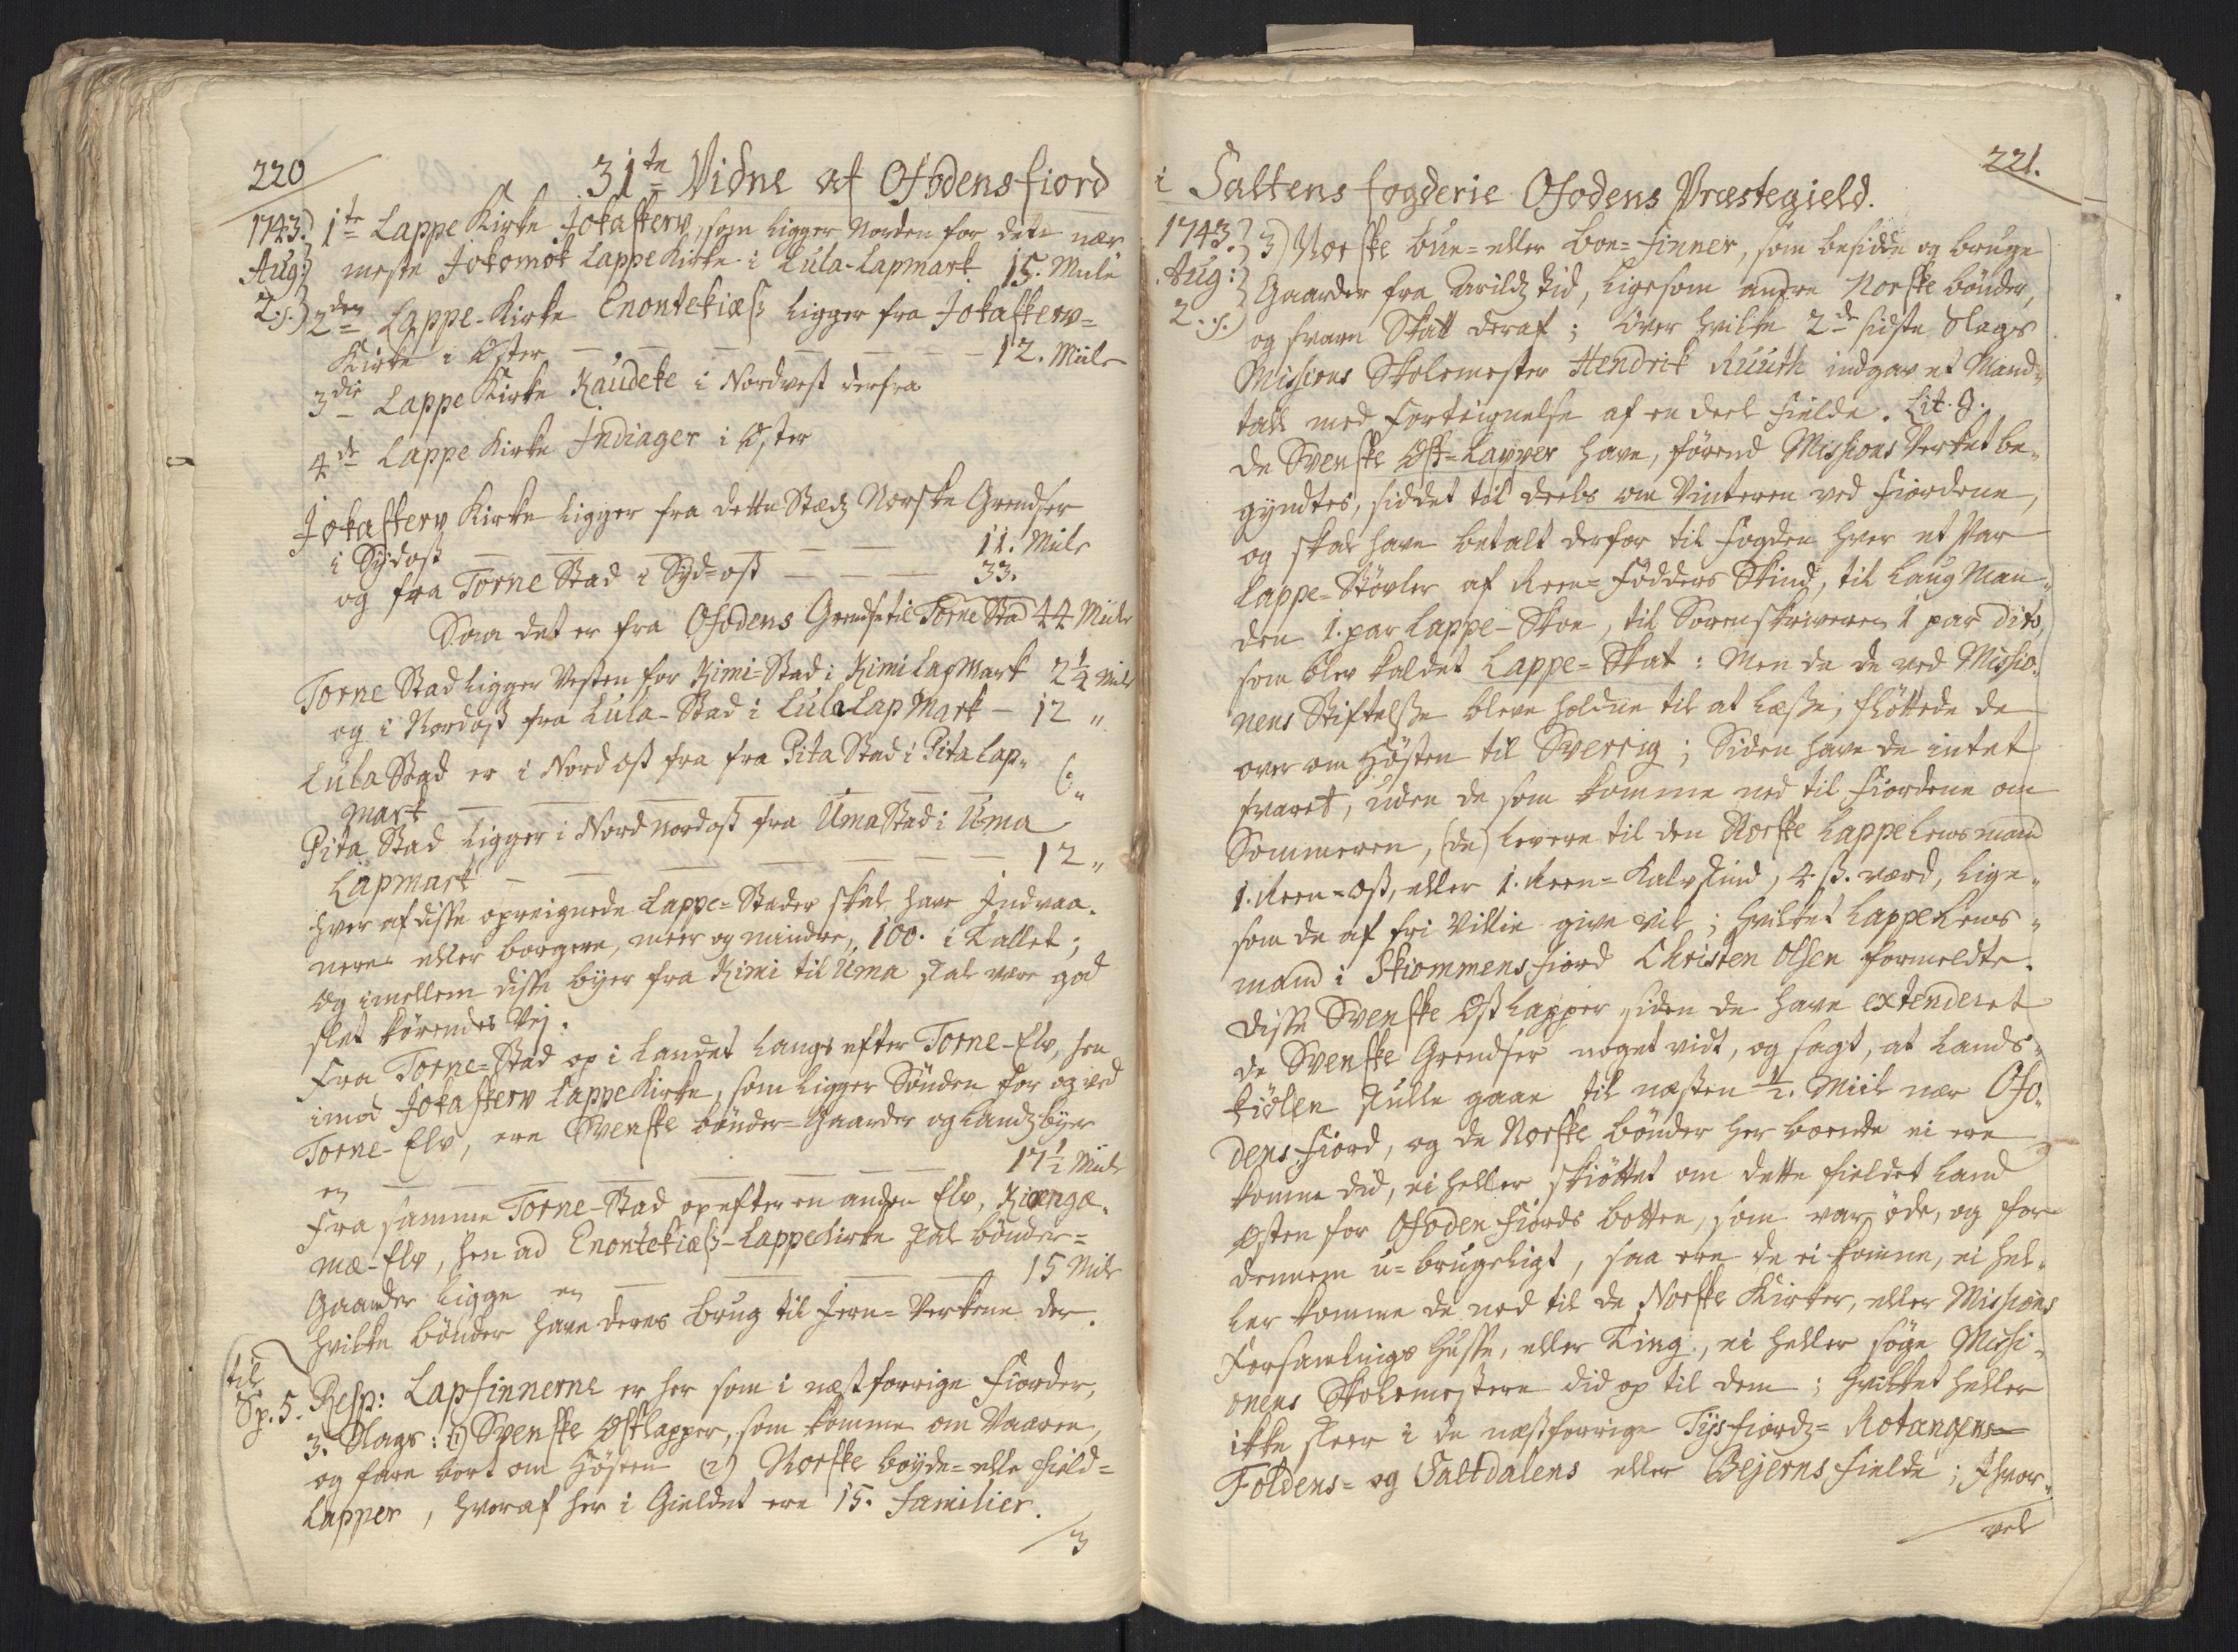 220
31te Vidne af Ofodensfiord
1743.
Aug:
2.s.
1te Lappe Kirke Jokaskerv, som ligger Norden for dette nær
meste Jokomok Lappe Kirke i Lula-Lapmark 15. Mule
2den Lappe-Kirke Enontekiæs ligger fra Jokaskerv=
Kirke i Øster — — — — — — 12. Miile
3die Lappe Kirke Kaudeke i Nordvest derfra
4de Lappe Kirke Indiager i Øster
Jokaskerv Kirke ligger fra dette Stædz Norske Grendser
i Sydost — — — — — — 11. Mile
og fra Torne Stad i Syd-ost — — — 33.
Saa det er fra Ofodens Grendse til Torne Stad 44 Miile
Torne Stad ligger Vesten for Kimi-Stad i Kimi LapMark 2 1/4 Mile
og i Nordost fra Lula-Stad i Lula LapMark — 12 "
Lula Stad er i Nordost fra fra Pita Stad i Pita Lap„
Mark — — — — — — 6 "
Pita Stad ligger i Nordnordost fra Uma Stad i Uma
Lapmark — — — — — — 12 "
Hver af disse opreignede Lappe-Stader skal have Indvaa„
nere eller borgere, meer og mindre, 100. i Tallet;
Og imellem disse byer fra Kimi til Uma skal være god
slet kørendes Vej.
Fra Torne-Stad op i Landet langs efter Torne-Elv, hen
imod Jokaskerv Lappe Kirke, som ligger Sønden for og ved
Torne-Elv, ere Svenske bønder-Gaarder og Landzbyer
en — — — — — — 17 1/2 Mile
Fra samme Torne-Stad op efter en anden Elv, Kiængæ„
mæ-Elv, hen ad Enontekiæs-Lappe Kirke skal bønder=
Gaarder ligge en — — — — 15 Mile
hvilke bønder have deres brug til Jern-Verkene der.
til
Sp. 5. Resp: Lapfinnerne er her som i næstforrige Fiorder,
3. Slags: 1) Svenske Østlapper, som komme om Vaaren,
og fare bort om Høsten (2) Norske bøyde- elle Field=
Lapper, hvoraf her i Gieldet ere 15. Familier.
3
221.
i Saltens fogderie Ofodens Præstegield.
1743.
Aug:
2.s.
3) Norske bue- eller boe-finner, som besidde og bruge
Gaarder fra Arildz tid, ligesom andre Norske bønder,
og svare Skatt deraf; Over hvilke 2de sidste Slags
Missions Skolemester Hendrik Ruuth indgav et Mand„
tall med Forteignelse af en deel Fielde. Lit. G.
De Svenske Øst-Lapper have, førend Missions Verket be„
gyndtes, siddet til deels om Vinteren ved Fiordene,
og skal have betalt derfor til Fogden hver et Par
Lappe-Støvler af Reen-Fødders Skind, til LaugMan„
den 1. par Lappe-Skoe, til Sorenskriveren 1 par dito,
som blev kaldet Lappe-Skat: Men da de ved Missio„
nens Stiftelsse bleve holdne til at læsse, fløttede de
over om Høsten til Sverrig; Siden have de intet
svaret, uden de som komme ned til Fiordene om
Sommeren, (de) levere til den Norske Lappe Lensmand
1. Reen-Ost, eller 1. Reen-Kalvskind, 4. ß. værd, lige„
som de af fri Villie give vil; hvilket Lappe Lens„
mand i Skiommensfiord Christen Olsen formeldte.
Disse Svenske Østlapper, siden de have extenderet
de Svenske Grendser noget vidt, og sagt, at Lands„
kiølen skulle gaae til næsten 1/2. Miil nær Ofo„
densfiord, og de Norske bønder her boende ei ere
komne did, ei heller skiøttet om dette fieldet Land
Østen for Ofodenfiords botten, som var øde, og for
dennem u-brugeligt, saa ere de ei komne, ei hel„
ler komme de ned til de Norske Kirker, eller Missions
Forsamlings Husse, eller Ting, ei heller søge Missi„
onens Skolemestere did op til dem; hvilket heller
ikke skeer i de næstforrige Tysfiordz- Rotangens=
Foldens- og Saltdalens eller Bejerns fielde; Ihvor„
vel